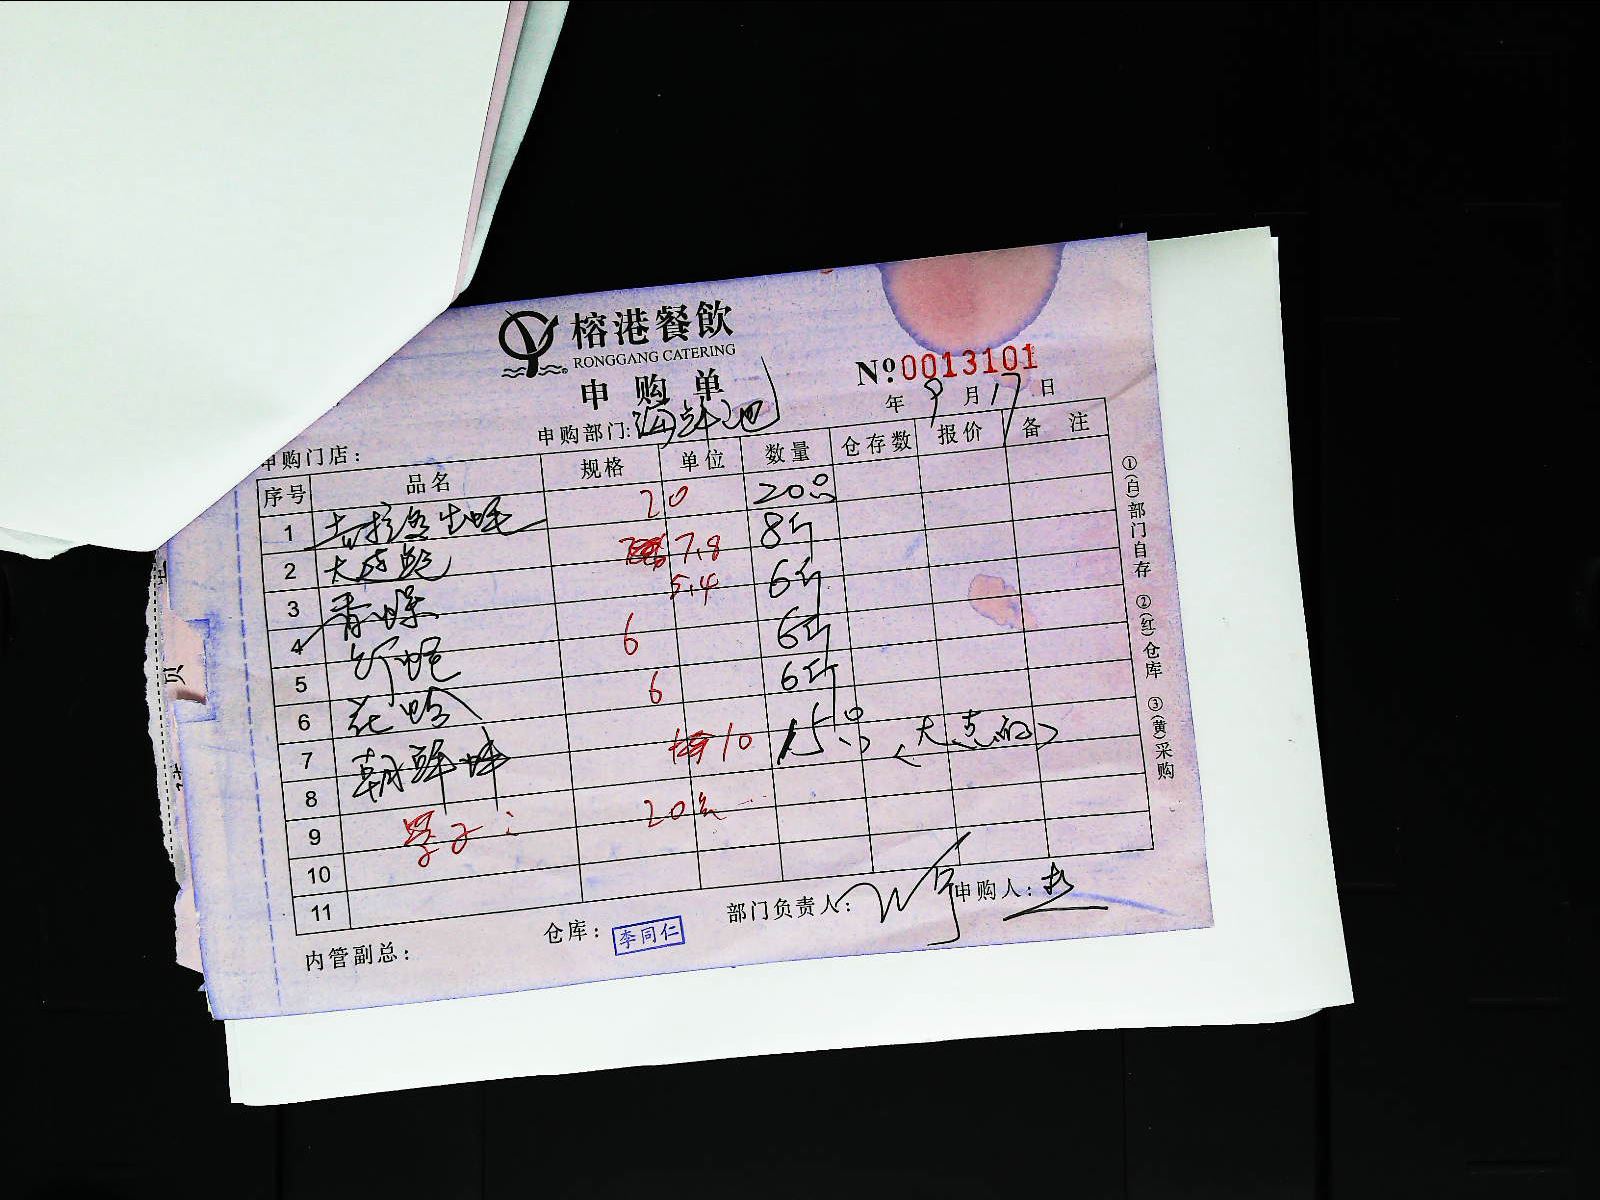 榕港餐飲
RONGGANG CATERING
申购单
№0013101
年 9月17日
申购部门:海鲜池
申购门店:
序号 品名 规格 单位 数量 仓存数 报价 备注
1 吉拉多生蚝 20 20只
2 大连鲍 7.8 8斤
3 香螺 5.4 6斤
4 6 6斤
5 6 6斤
6 花蛤
7 朝鲜蚌 10 15只 (大点的)
8
9 20只
10
11
内管副总:
仓库:李同仁
部门负责人:
申购人:
①(白)部门自存 ②(红)仓库 ③(黄)采购